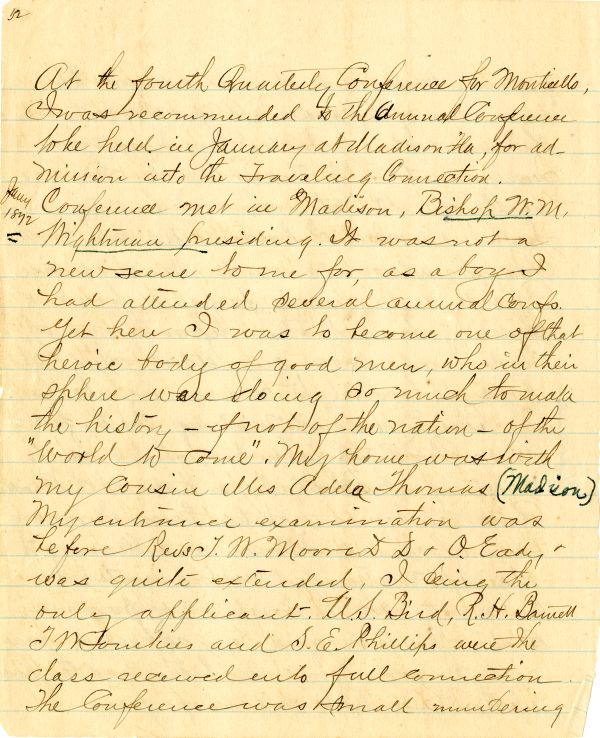 52
At the fourth Quarterly Conference for Monticello,
I was recommended to the annual Conference
to be held in January at Madison Fla, for ad-
mission into the Traveling Connection.
Jany
1872
Conference met in Madison, Bishop W. M.
Wightman presiding. It was not a
new scene to me for, as a boy I
had attended several annual Confs.
Yet here I was to become one of that
heroic body of good men, who in their
sphere were doing so much to make
the history - if not of the nation - of the
"World to come". My home was with
my Cousin Mrs Adela Thomas (Madison)
My entrance examination was
before Revs T. W. Moore D D & O. Eady, &
was quite extended, I being the
only applicant. U.S. Bird, R. H. Barnett
T W Tomkies and S. E. Phillips were the
class received into full connection.
The Conference was small numbering